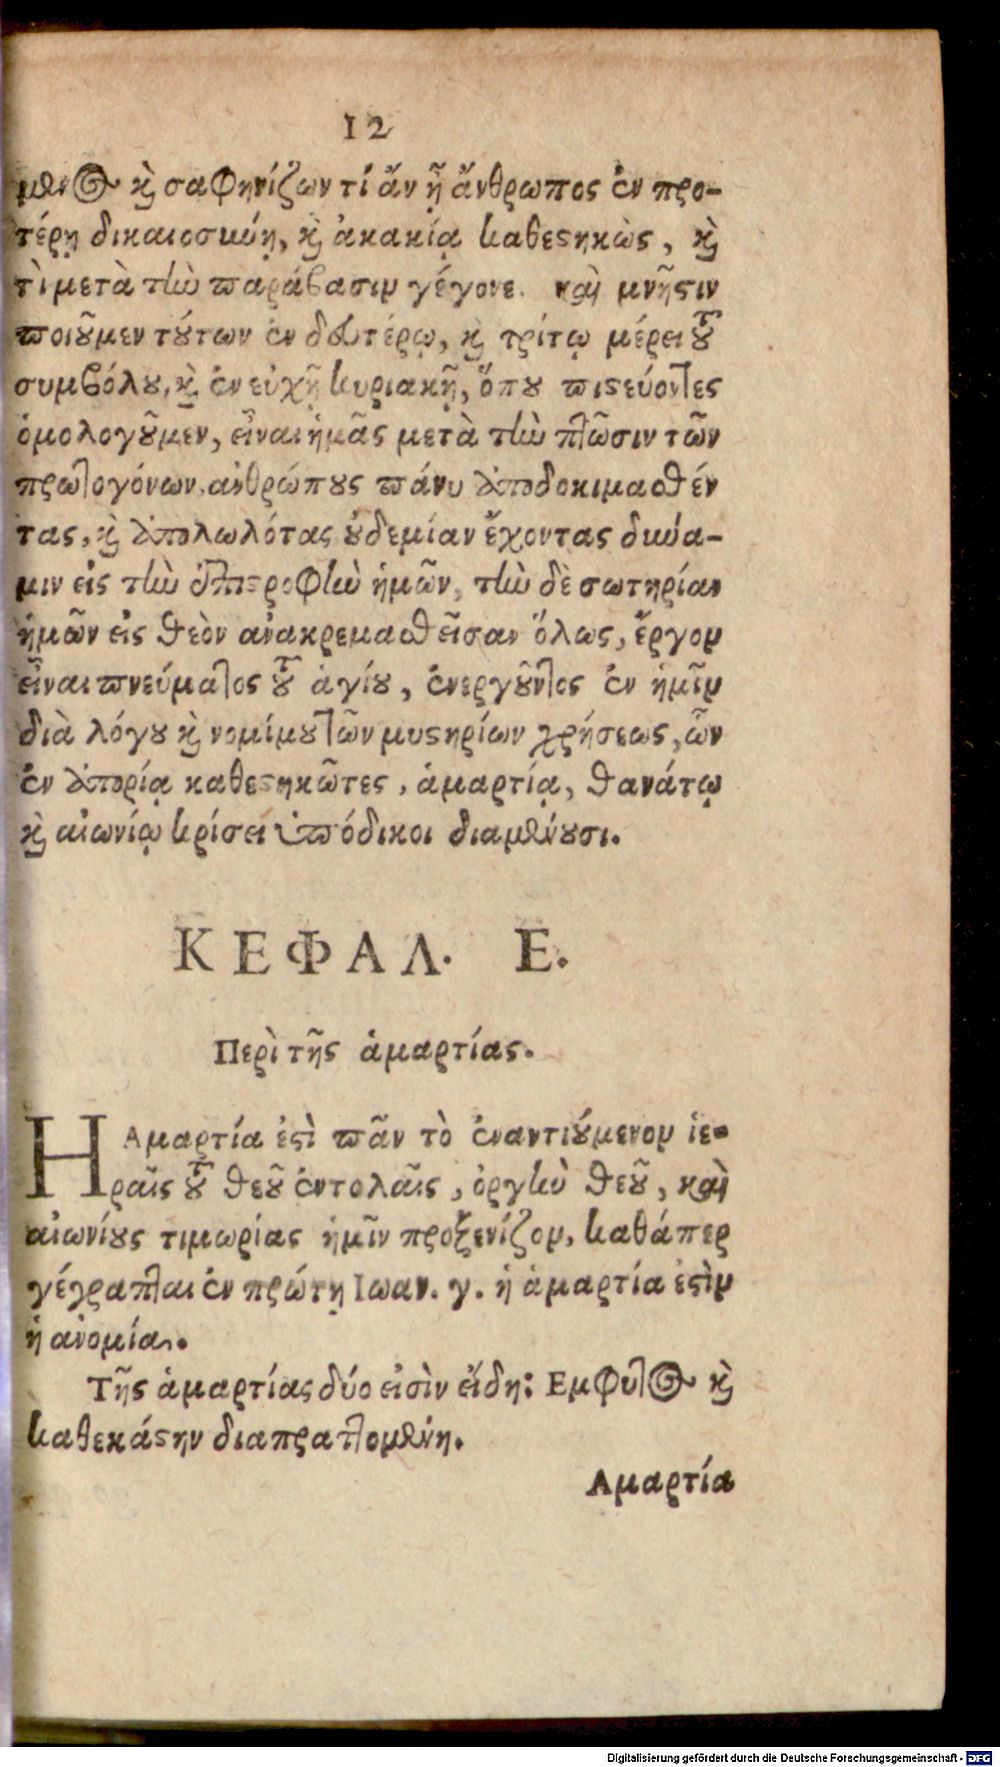 12
μενος καὶ σαφηνίζων τί ἄν ᾖ ἄνθρωπος ἐν προ-
τέρῃ δικαιοσύνῃ, καὶ ἀκακίᾳ καθεστηκὼς, καὶ
τὶ μετὰ τὴν παράβασιν γέγονε. καὶ μνῆσιν
ποιοῦμεν τούτων ἐν δευτέρῳ, καὶ τρίτῳ μέρει τοῦ
συμβόλου, καὶ ἐν εὐχῇ κυριακῇ, ὅπου πιστεύοντες
ὁμολογοῦμεν, εἶναι ἡμᾶς μετὰ τὴν πτῶσιν τῶν
πρωτογόνων ἀνθρώπους πάνυ ἀποδοκιμασθέν
τας, καὶ ἀπολωλότας οὐδεμίαν ἔχοντας δύνα-
μιν εἰς τὴν ἐπιστροφὴν ἡμῶν, τὴν δὲ σωτηρίαν
ἡμῶν εἰς θεὸν ἀνακρεμασθεῖσαν ὅλως, ἔργον
εἶναι πνεύματος τοῦ ἁγίου, ἐνεργοῦντος ἐν ἡμῖν
διὰ λόγου καὶ νομίμου τῶν μυστηρίων χρήσεως, ὧν
ἐν ἀπορίᾳ καθεστηκῶτες, ἁμαρτίᾳ, θανάτῳ
καὶ αἰωνίῳ κρίσει ὑπόδικοι διαμένουσι.
ΚΕΦΑΛ. Ε.
Περὶ τῆς ἁμαρτίας.
Η Αμαρτία ἐστὶ πᾶν τὸ ἐναντιούμενον ἱε-
ραῖς τοῦ θεοῦ ἐντολαῖς, ὀργὴν θεοῦ, καὶ
αἰωνίους τιμωρίας ἡμῖν προξενίζον, καθάπερ
γέγραπται ἐν πρώτῃ Ιωαν. γ. ἡ ἁμαρτία ἐστὶν
ἡ ἀνομία.
Τῆς ἁμαρτίας δύο εἰσὶν εἴδη: Εμφυτος καὶ
καθεκάστην διαπραττομένη.
Αμαρτία
Digitalisierung gefördert durch die Deutsche Forschungsgemeinschaft - DFG